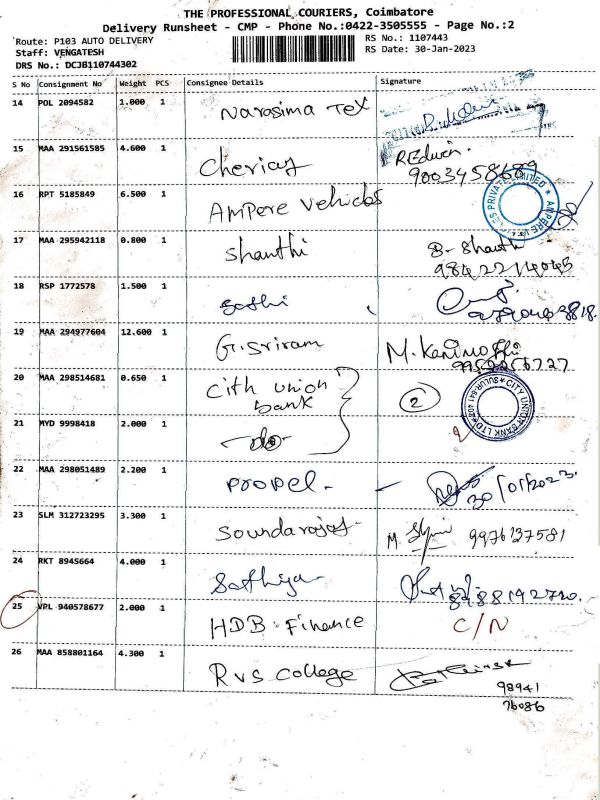 THE PROFESSIONAL COURIERS, Coimbatore
Delivery Runsheet - CMP - Phone No.:0422-3505555 - Page No.:2
Route: P103 AUTO DELIVERY
Staff: VENGATESH
DRS No.: DCJB110744302
RS No.: 1107443
RS Date: 30-Jan-2023
S No Consignment No Weight PCS Consignee Details Signature
14 POL 2094582 1.000 1 Narasima Tex
15 MAA 291561585 4.600 1 Cheriay REdwin.
9003458689
16 RPT 5185849 6.500 1 AMPere Vehicles
17 MAA 295942118 0.800 1 Shanthi B. Shanth
9842214045
18 RSP 1772578 1.500 1 Sashi
19 MAA 294977604 12.600 1 G. Sriram M. Kanimozhi
20 MAA 298514681 0.650 1 Cith union bank 2
CITY UNION BANK LTD
21 MYD 9998418 2.000 1 -do-
22 MAA 298051489 2.200 1 Propel. -
30/01/2023.
23 SLM 312723295 3.300 1 Soundaraj M. 9976137581
24 RKT 8945664 4.000 1 Sathiya
25 VPL 940578677 2.000 1 HDB Finance C/N
26 MAA 858801164 4.300 1 RVS College
98941
76086